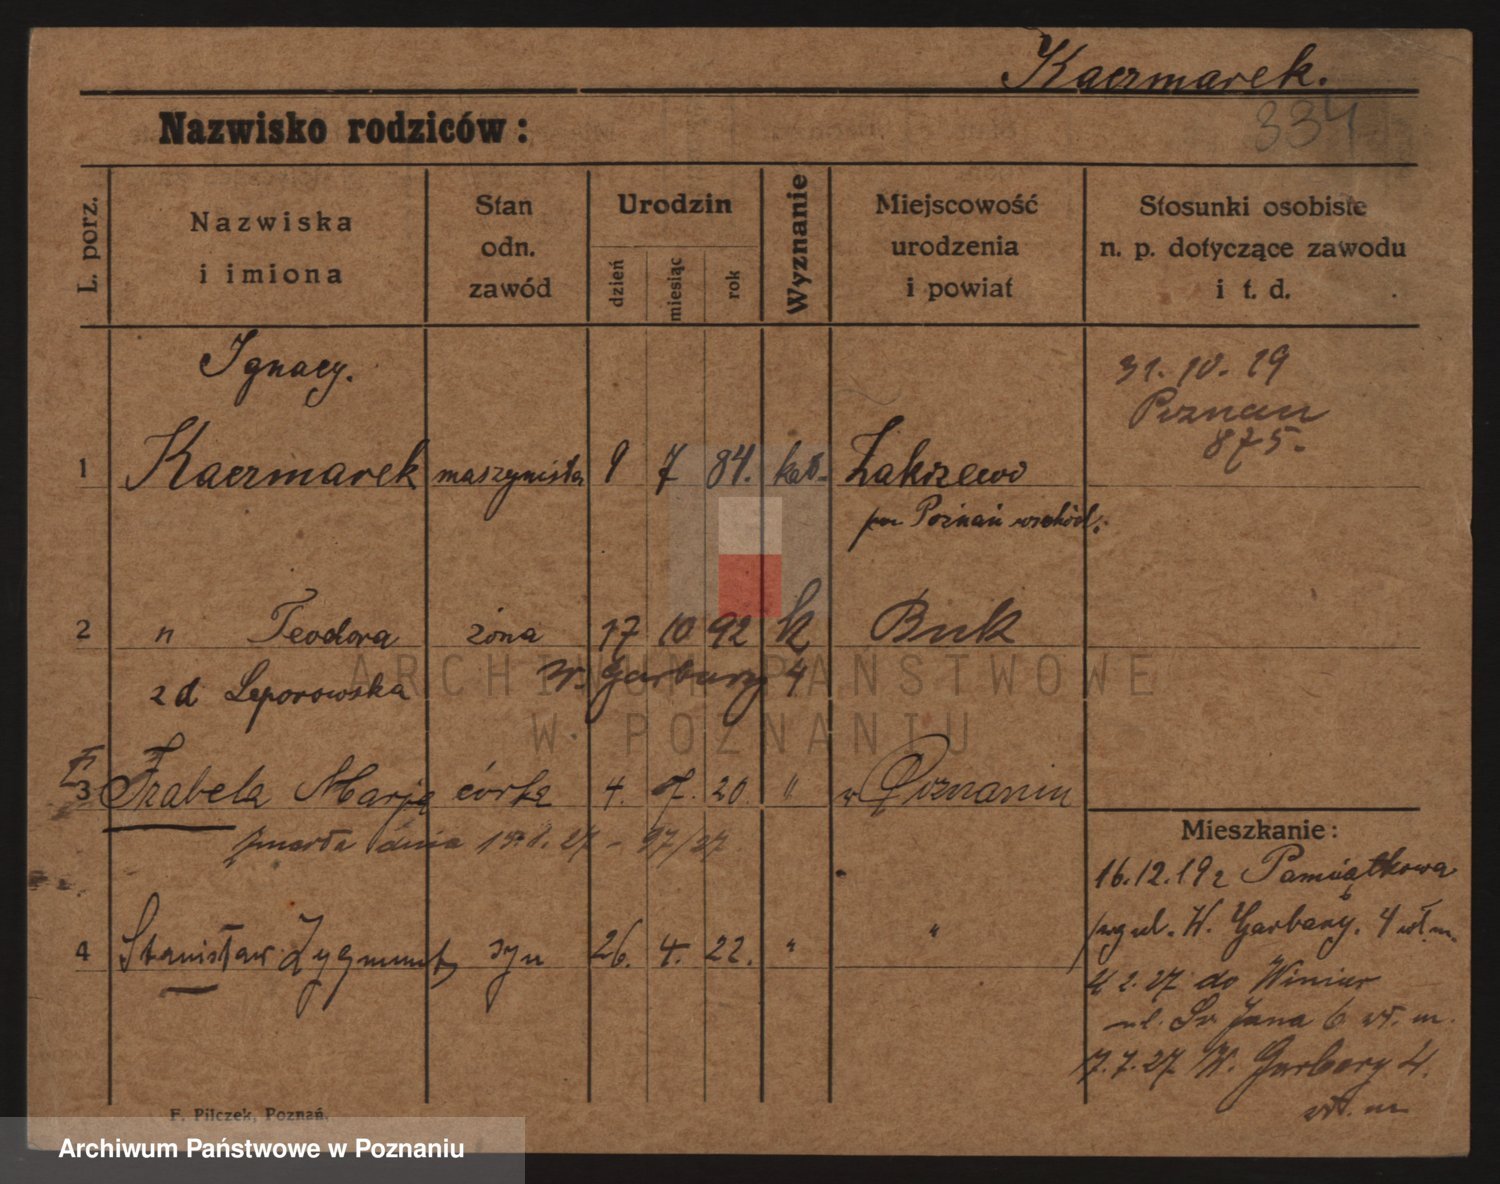 Kaczmarek.
Nazwisko rodziców:
334
L. porz.
Nazwiska
i imiona
Stan
odn.
zawód
Urodzin
dzień
miesiąc
rok
Wyznanie
Miejscowość
urodzenia
i powiat
Stosunki osobiste
n. p. dotyczące zawodu
i t. d.
Ignacy.
31. 10. 19
Poznań
875.
1 Kaczmarek maszynista 9 7 84. kat. Zakrzewo
pow Poznań wschód.
2 " Teodora żona 17 10 92 k Buk
zd Leporowska W. Garbary 4
3 Izabela Marja córka 4. 7. 20. " w Poznaniu
zmarła dnia 27 - 97/27
Mieszkanie:
16.12.192 Pamiątkowa
W. Garbary. 4 wł. m.
4 Stanisław Zygmunt syn 26. 4. 22. " "
4 2. 27 do Winiar
ul. Św Jana 6 wł. m.
17. 7. 27 W. Garbary 4.
wł. m
F. Pilczek, Poznań.
ARCHIWUM PAŃSTWOWE
W POZNANIU
Archiwum Państwowe w Poznaniu